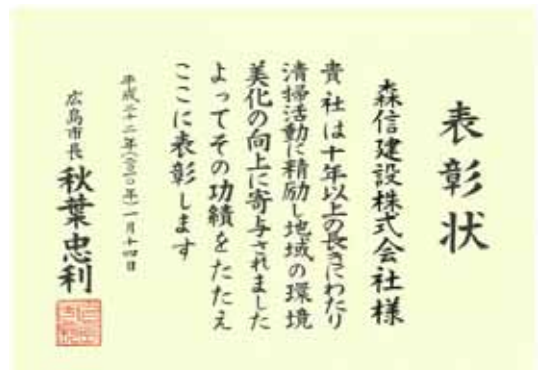 表彰状
森信建設株式会社様
貴社は十年以上の長きにわたり
清掃活動に精励し地域の環境
美化の向上に寄与されました
よってその功績をたたえ
ここに表彰します
平成二十二年(二〇一〇年)一月十四日
広島市長 秋葉忠利